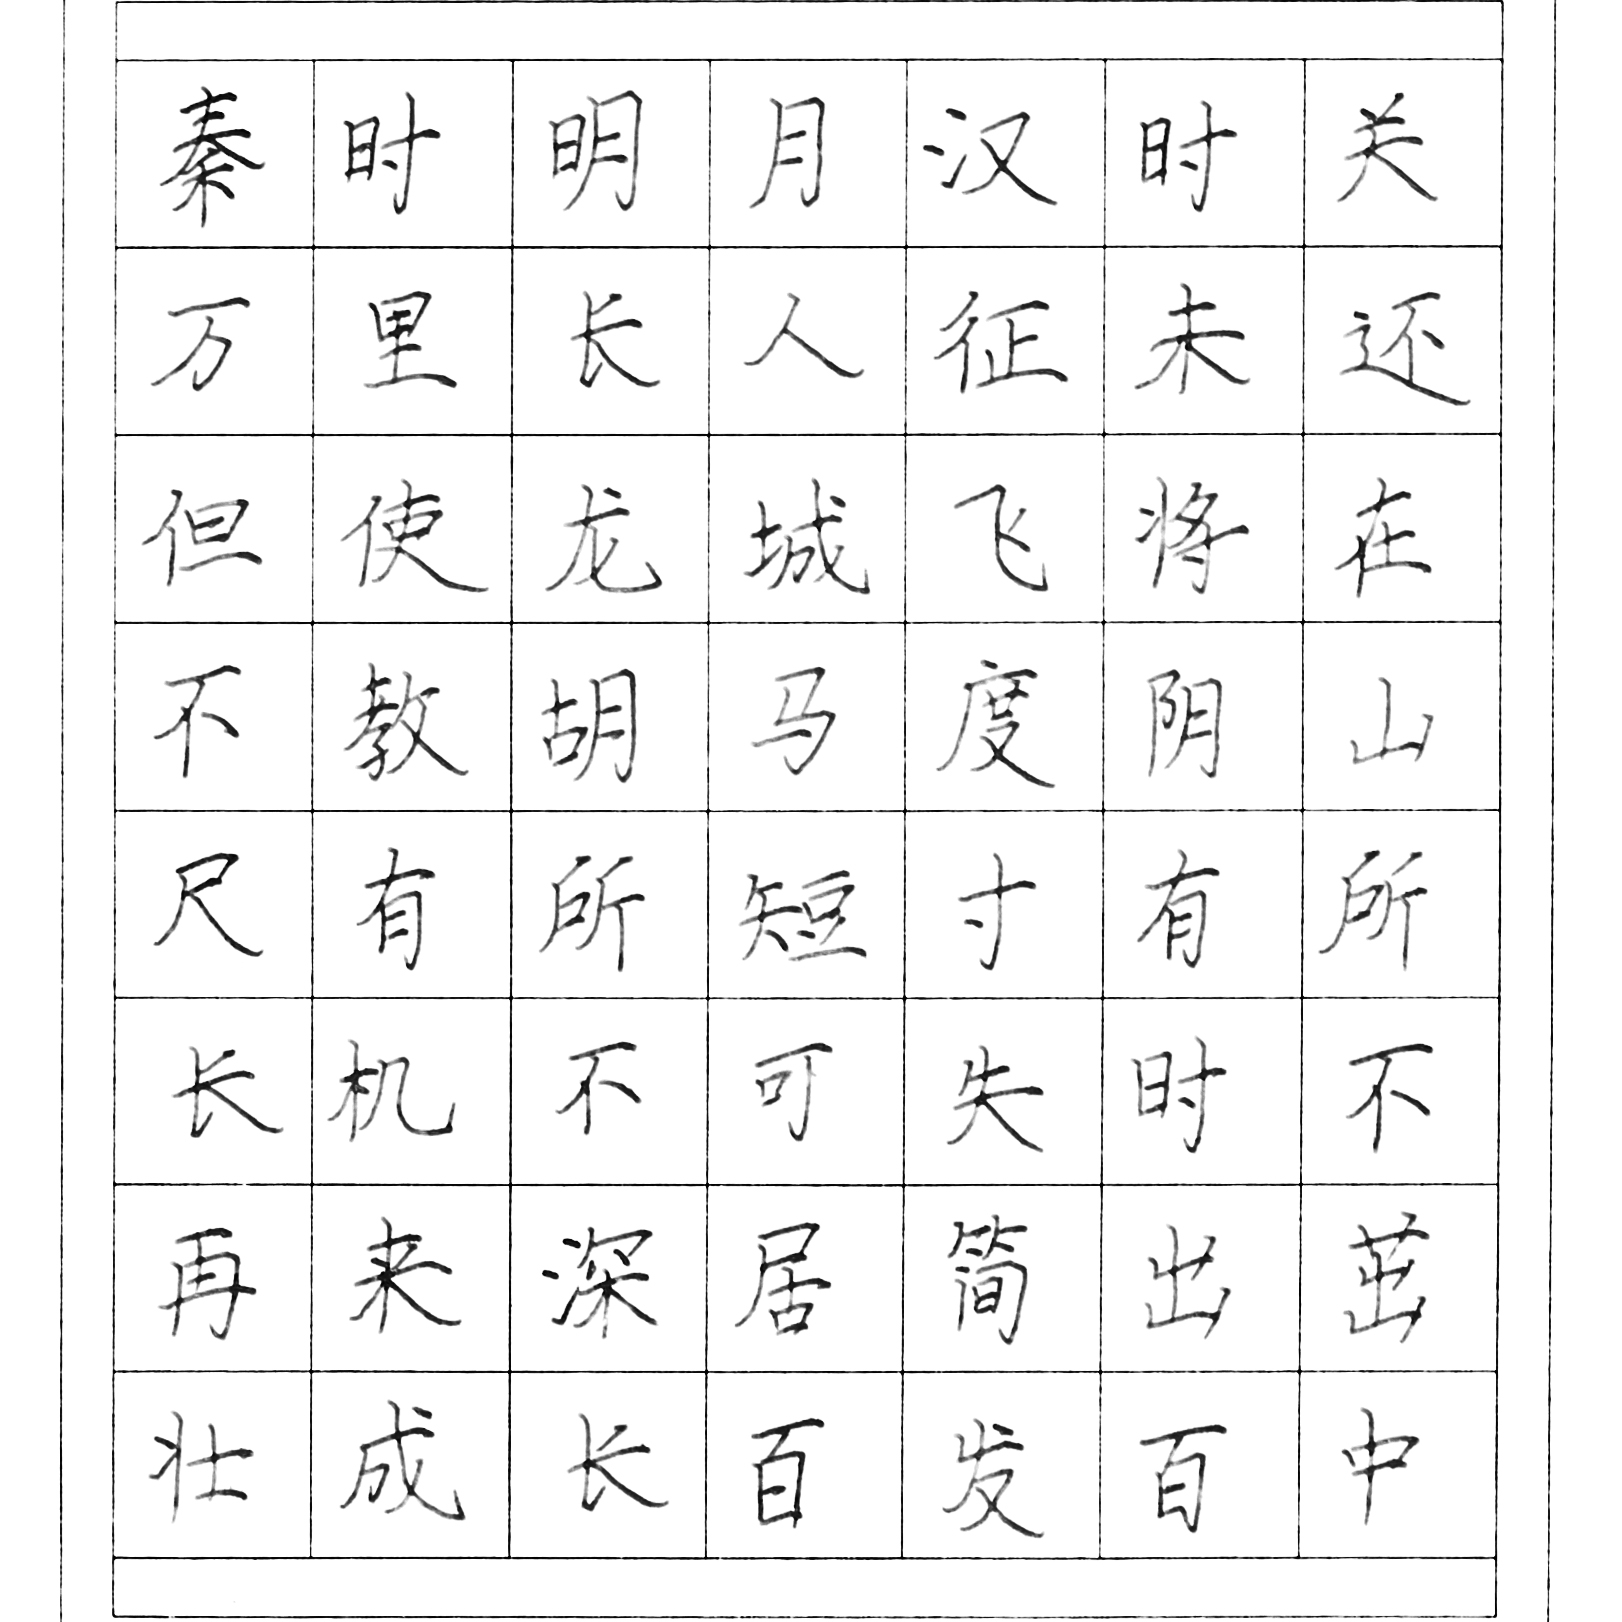 秦时明月汉时关
万里长人征未还
但使龙城飞将在
不教胡马度阴山
尺有所短寸有所
长机不可失时不
再来深居简出茁
壮成长百发百中